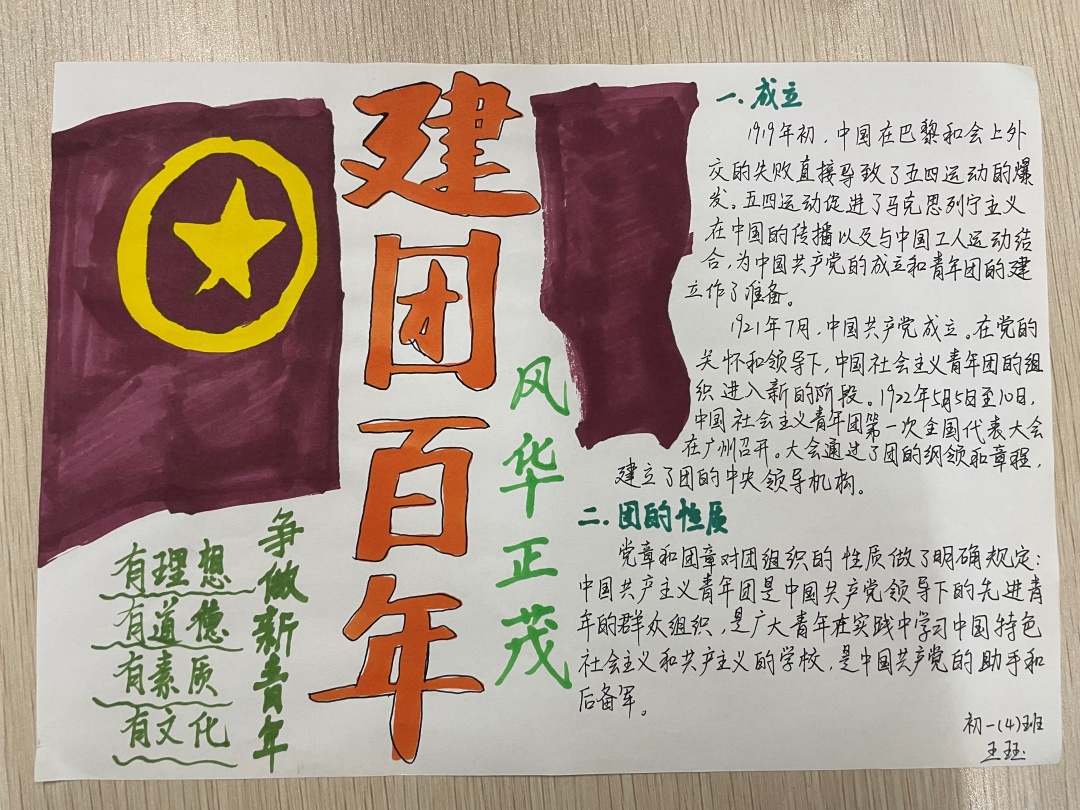 建团百年
风华正茂
争做新青年
有理想
有道德
有素质
有文化
一.成立
1919年初，中国在巴黎和会上外
交的失败直接导致了五四运动的爆
发。五四运动促进了马克思列宁主义
在中国的传播以及与中国工人运动结
合，为中国共产党的成立和青年团的建
立作了准备。
1921年7月，中国共产党成立。在党的
关怀和领导下，中国社会主义青年团的组
织进入新的阶段。1922年5月5日至10日，
中国社会主义青年团第一次全国代表大会
在广州召开。大会通过了团的纲领和章程，
建立了团的中央领导机构。
二.团的性质
党章和团章对团组织的性质做了明确规定：
中国共产主义青年团是中国共产党领导下的先进青
年的群众组织，是广大青年在实践中学习中国特色
社会主义和共产主义的学校，是中国共产党的助手和
后备军。
初一(4)班
王珏